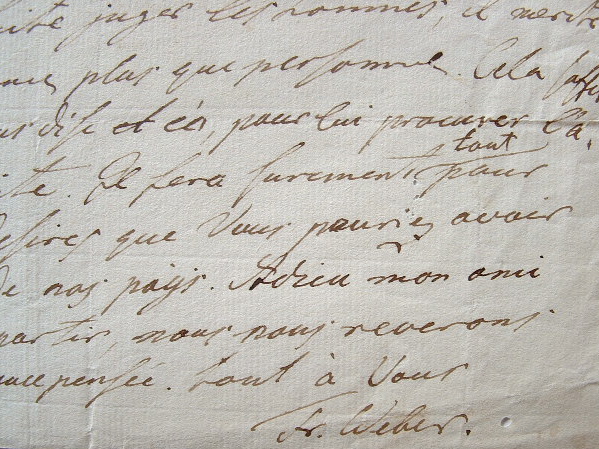 juger les hommes, il merite
plus que personne. Cela
et ça, pour lui procurer l'a-
Il fera surement tout pour
que Vous pouriez avoir
de nos païs. Adieu mon ami
partir, nous nous reverons
pensée. tout à Vous
Fr. Weber.